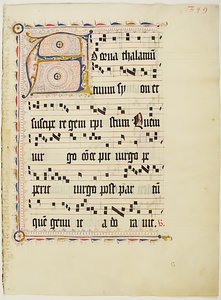 A
dorna thalamū
tuum sy on et
suscipe regem xpi stum Quem
uir go cōce pit uirgo pe
perit uirgo post par tū
quē genu it a do ra uit.